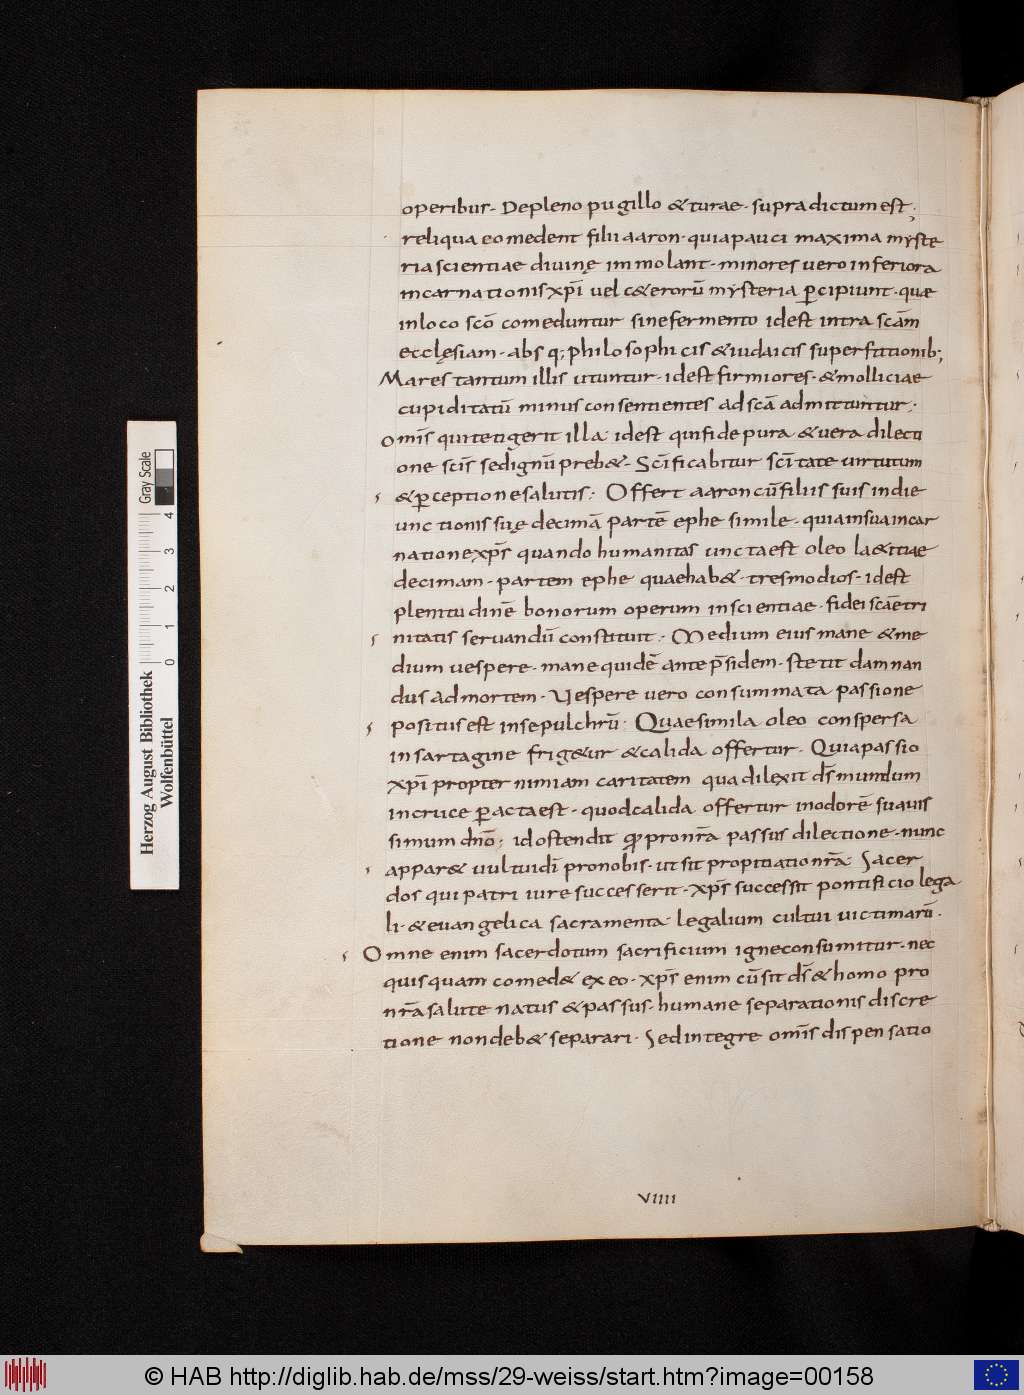 operibus. De pleno pugillo & turae. supra dictum est;
reliqua comedent filii aaron. quia pauci maxima myste
ria scientiae divinę immolant. minores vero inferiora
incarnationis xp̄i vel c&erorū mysteria p̄cipiunt. quae
in loco scō comeduntur sine fermento id est intra scām
ecclęsiam. absq; philosophicis & iudaicis superstitionib;
Mares tantum illis utuntur. id est firmiores. & molliciae
cupiditatū minus consentientes ad scā admittuntur;
omīs qui tetigerit illa. id est qui fide pura & vera dilecti
one scīs se dignū preb&. Scīficabitur scītate virtutum
& p̄ceptione salutis; Offert aaron cū filiis suis in die
unctionis suę decimā partē ephe simile. quia in sua incar
natione xp̄s quando humanitas uncta est oleo la&itiae
decimam. partem ephe quae hab& . tres modios. id est
plenitudinē bonorum operum in scientiae. fidei scāe tri
nitatis servandū constituit; Medium eius mane & me
dium vespere. mane quidē ante p̄sidem. stetit damnan
dus ad mortem. Vespere vero consummata passione
positus est in sepulchrū; Quae simila oleo conspersa
in sartagine frig&ur & calida offertur. Quia passio
xp̄i propter nimiam caritatem qua dilexit d̄s mundum
in cruce p̄acta est. quod calida offertur in odorē suavis
simum dn̄o; id ostendit q̄ pro nr̄a passus dilectione. nunc
appar& vultui dī pro nobis. ut sit propitiatio nr̄a. Sacer
dos qui patri iure successerit. xp̄s successit pontificio lega
li. & evangelica sacramenta. legalium cultui victimarū.
Omne enim sacerdotum sacrificium igne consumitur. nec
quisquam comed& ex eo. xp̄s enim cū sit d̄s & homo pro
nr̄a salute natus & passus. humane separationis discre
tione non deb& separari. Sed integre omīs dispensatio
VIIII
Gray Scale
4 3 2 1 0
Herzog August Bibliothek
Wolfenbüttel
© HAB http://diglib.hab.de/mss/29-weiss/start.htm?image=00158